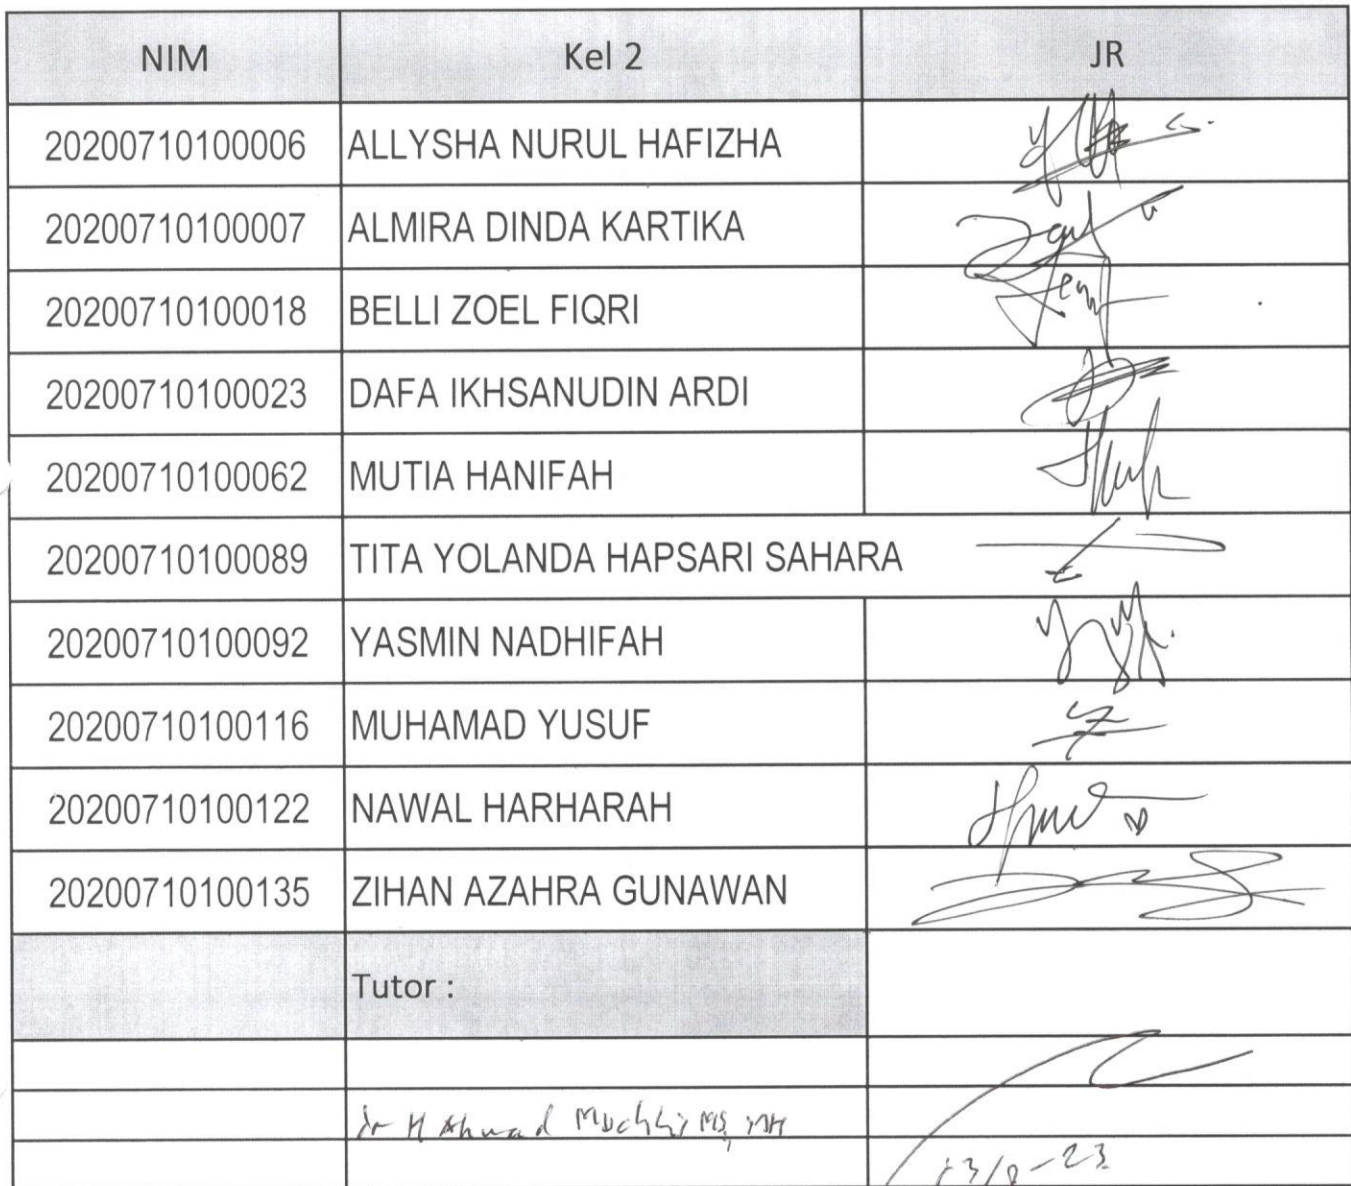 NIM Kel 2 JR
20200710100006 ALLYSHA NURUL HAFIZHA
20200710100007 ALMIRA DINDA KARTIKA
20200710100018 BELLI ZOEL FIQRI
20200710100023 DAFA IKHSANUDIN ARDI
20200710100062 MUTIA HANIFAH
20200710100089 TITA YOLANDA HAPSARI SAHARA
20200710100092 YASMIN NADHIFAH
20200710100116 MUHAMAD YUSUF
20200710100122 NAWAL HARHARAH
20200710100135 ZIHAN AZAHRA GUNAWAN
Tutor :
dr H Ahmad MS, MH